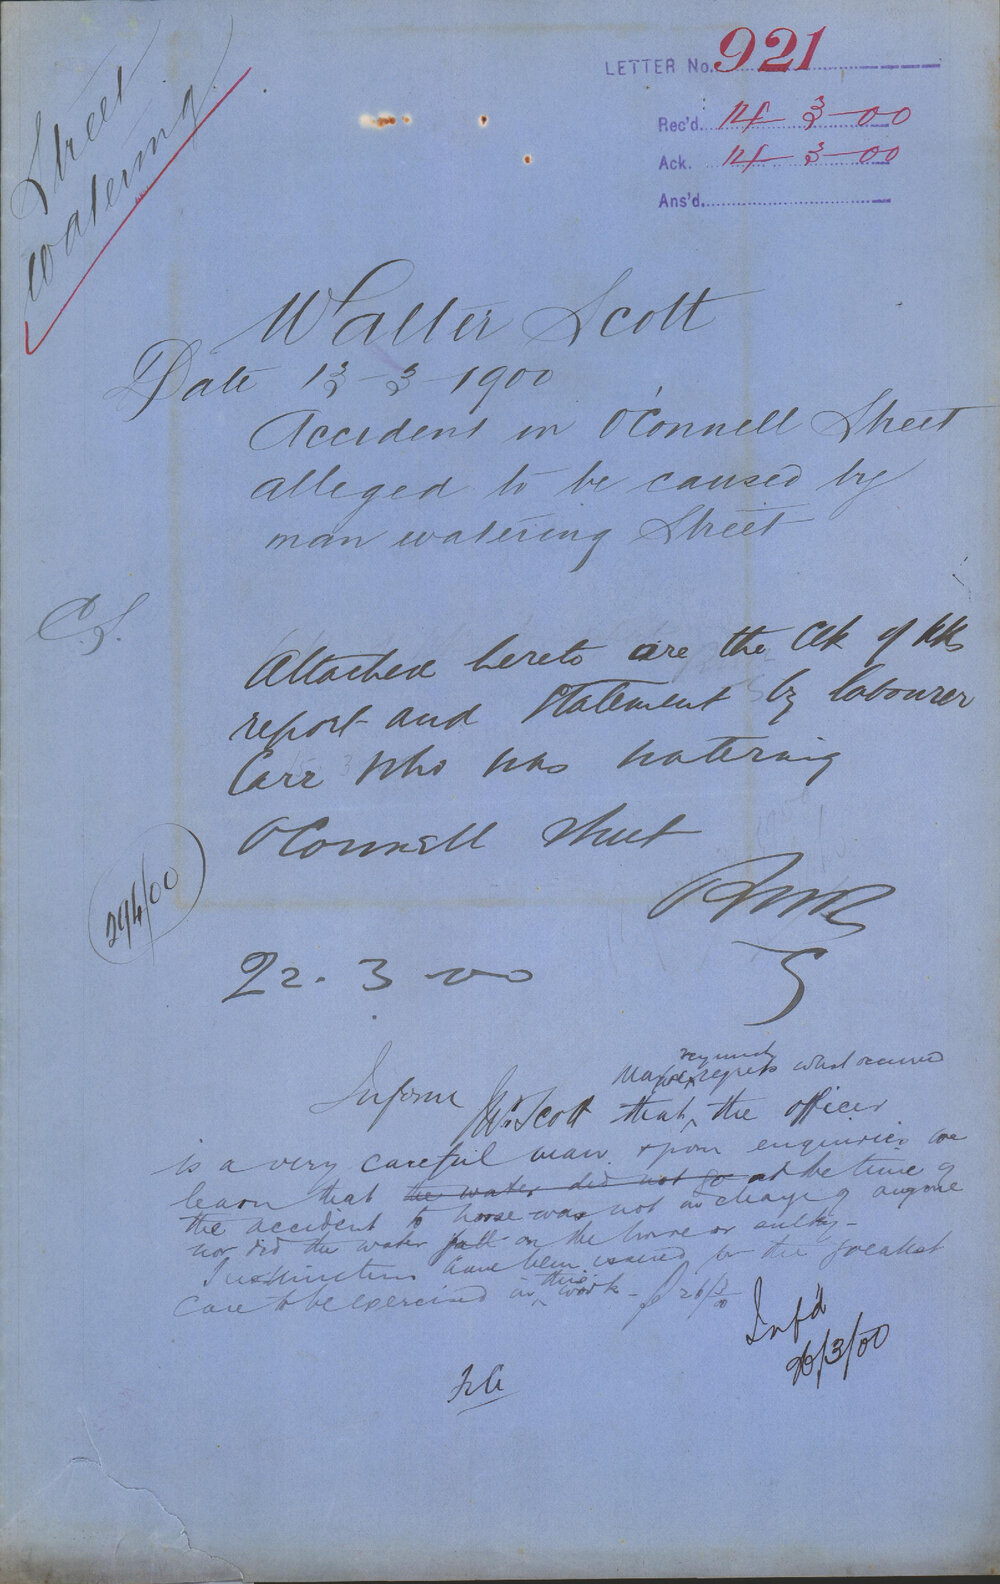 Street
Watering
LETTER No. 921
Rec'd. 14-3-00
Ack. 14-3-00
Ans'd.
Walter Scott
Date 13-3-1900
Accident in O'Connell Street
alleged to be caused by
man watering Street
C.S.
Attached hereto are the Clk of Wks
report and statement by labourer
Carr who was watering
O'Connell Street
294/00
22.3.00
Inform Mr Scott that Mayor regrets what occurred the officer
is a very careful man & upon enquiries we
learn that the water did not go at the time of
the accident to horse was not in charge of anyone
nor did the water fall on the horse or sulky-
Instructions have been issued for the greatest
care to be exercised in this work - 26/3/00
Inf'd
26/3/00